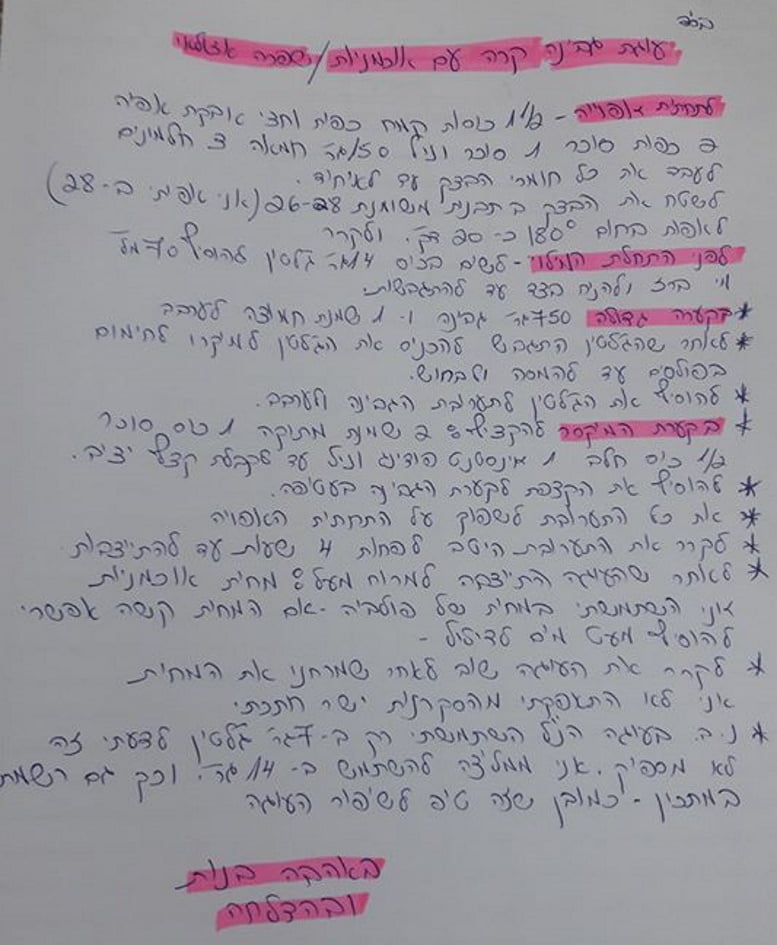 בס"ד
עוגת גבינה קרה עם אוכמניות/שפרה אזולאי
לתחתית אפוייה - 1 1/2 כוסות קמח כפית וחצי אבקת אפיה
2 כפות סוכר 1 סוכר וניל 150 גר' חמאה 3 חלמונים
לעבד את כל חומרי הבצק עד לאיחוד.
לשטח את הבצק בתבנית משומנת 26-28 (אני אפיתי ב-28)
לאפות בחום 180° כ-20 דק'. ולקרר
לפני התחלת המילוי - לשים בכוס 14 גר' ג'לטין להוסיף 70 מל'
מי ברז ולהניח בצד עד להתגבשות.
* בקערה גדולה 750 גר' גבינה ו-1 שמנת חמוצה לערבב
* לאחר שהג'לטין התגבש להכניס את הג'לטין למיקרו לחימום
בפולסים עד להמסה ולבחוש.
* להוסיף את הג'לטין לתערובת הגבינה ולערבב.
* בקערת המיקסר להקציף: 2 שמנת מתוקה 1 כוס סוכר
1/2 כוס חלב 1 אינסטנט פודינג וניל עד לקבלת קצף יציב.
* להוסיף את הקצפת לקערת הגבינה בעטיפה.
* את כל התערובת לשפוך על התחתית האפויה
* לקרר את התערובת היטב לפחות 4 שעות עד להתייצבות
* לאחר שהעוגה התייצבה למרוח מעל: מחית אוכמניות
אני השתמשתי במחית של פולביה - אם המחית קשה אפשר
להוסיף מעט מים לדילול -
* לקרר את העוגה שוב לאחר שמרחנו את המחית
אני לא התאפקתי מהסקרנות ישר חתכתי
* נ.ב. בעוגה הנ"ל השתמשתי רק ב-7 גר' ג'לטין לדעתי זה
לא מספיק. אני ממליצה להשתמש ב-14 גר'. וכך גם רשמתי
במתכון - כמובן שזה טיפ לשיפור העוגה
באהבה בנות
ובהצלחה